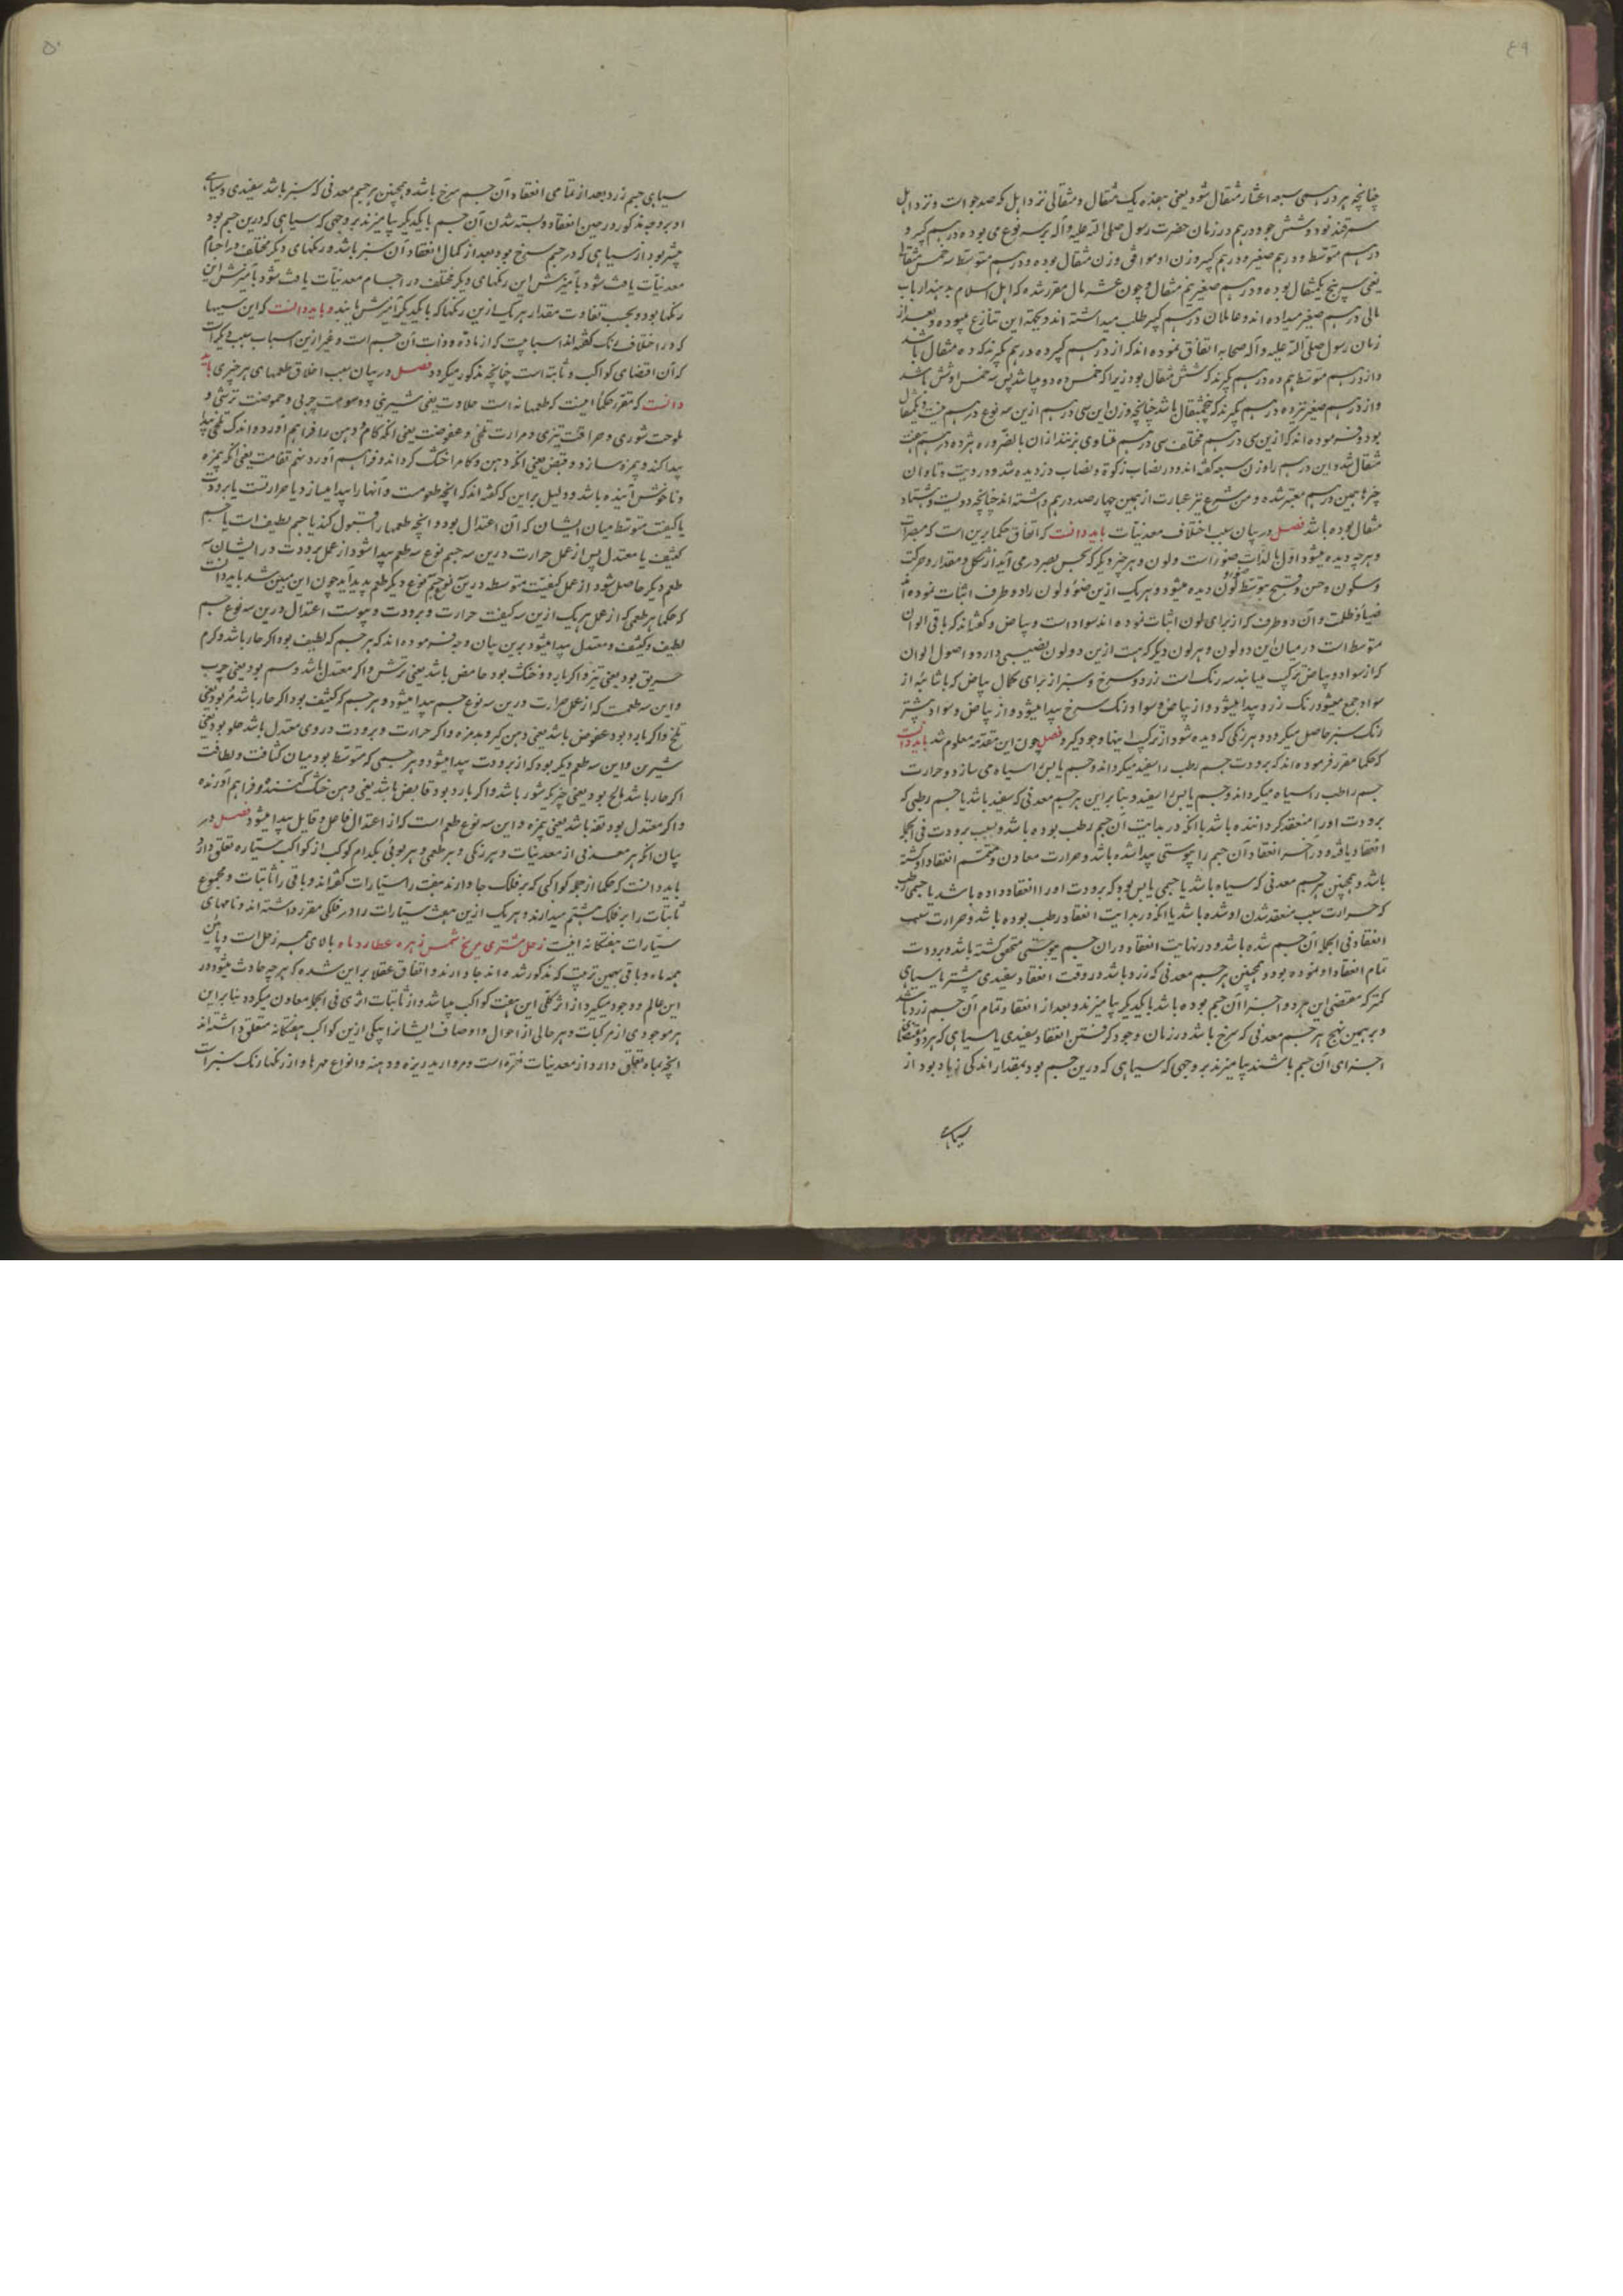 ۴۹
چنانچه هر درهمی سبعه اعشار مثقال شود یعنی هفده یک مثقال و مثقالی نزد اهل مکه صد جو است و نزد اهل
سمرقند نود و شش جو و درهم در زمان حضرت رسول صلی الله علیه و آله بر سه نوع می بوده درهم کبیر و
درهم متوسط و درهم صغیر و درهم کبیر وزن او موافق وزن مثقال بوده و درهم متوسط سه خمس مثقال
یعنی سه پنج یک مثقال بوده و درهم صغیر نیم مثقال و چون عشر مال مقرر شده که اهل اسلام بدهند ارباب
مالی درهم صغیر میداده اند و عاملان درهم کبیر طلب میداشته اند و بجهة این تنازع میبوده و بعد از
زمان رسول صلی الله علیه و آله صحابه اتفاق نموده اند که از درهم کبیر ده درهم بگیرند که ده مثقال باشد
و از درهم متوسط هم ده درهم بگیرند که شش مثقال بود زیرا که خمس ده دو میباشد پس سه خمس او شش باشد
و از درهم صغیر نیز ده درهم بگیرند که پنج مثقال باشد چنانچه وزن این سی درهم ازین سه نوع درهم بیست و یک مثقال
بود و فرموده اند که ازین سی درهم مختلف سی درهم متساوی بزنند از آن بالضروره هر ده درهم هفت
مثقال شد و این درهم را وزن سبعه گفته اند و در نصاب زکوة و نصاب دزدیده شد و در دیت و تاوان
چیزها همین درهم معتبر شده و من شرع نیز عبارت از همین چهار صد درهم داشته اند چنانچه دویست و هشتاد
مثقال بوده باشد فصل در بیان سبب اختلاف معدنیات باید دانست که اتفاق حکما برین است که مبصرات
و هر چه دیده میشود اول بالذات ضوء است و لون و هر چیز دیگر که بحس بصر در می آید از شکل و مقدار و حرکت
و سکون و حسن و قبح بتوسط ضوء و لون دیده میشود و هر یک ازین ضوء و لون را دو طرف اثبات نموده اند
ضیا و ظلمت و آن دو طرف که از برای لون اثبات نموده اند سواد است و بیاض و گفته اند که باقی الوان
متوسط است در میان این دو لون و هر لون دیگر که هست ازین دو لون نصیبی دارد و اصول الوان
که از سواد و بیاض ترکیب مییابند سه رنگ است زرد و سرخ و سبز از برای کمال بیاض که با شائبه از
سواد جمع میشود رنگ زرد پیدا میشود و از بیاض و سواد رنگ سرخ پیدا میشود و از بیاض و سواد بیشتر
رنگ سبز حاصل میگردد و هر رنگی که دیده شود از ترکیب اینها وجود گیرد فصل چون این مقدمه معلوم شد باید دانست
که حکما مقرر فرموده اند که برودت جسم رطب را سفید میگرداند و جسم یابس را سیاه می سازد و حرارت
جسم رطب را سیاه میگرداند و جسم یابس را سفید و بنا بر این هر جسم معدنی که سفید باشد یا جسم رطبی که
برودت او را منعقد گردانیده باشد با آنکه در بدایت آن جسم رطب بوده باشد و بسبب برودت فی الجمله
انعقاد یافته و در آخر انعقاد آن جسم را یبوستی پیدا شده باشد و حرارت معاون و متمم انعقاد او گشته
باشد و همچنین هر جسم معدنی که سیاه باشد یا جسمی یابس بود که برودت او را انعقاد داده باشد یا جسمی رطب
که حرارت سبب منعقد شدن او شده باشد یا آنکه در بدایت انعقاد رطب بوده باشد و حرارت سبب
انعقاد فی الجمله آن جسم شده باشد و در نهایت انعقاد در آن جسم یبوستی متحقق گشته باشد و برودت
تمام انعقاد او نموده بود و همچنین هر جسم معدنی که زرد باشد در وقت انعقاد سفیدی بیشتر با سیاهی
کمتر که مقتضی این هر دو اجزا آن جسم بوده باشد با یکدیگر بیامیزند و بعد از انعقاد تمام آن جسم زرد باشد
و بر همین نهج هر جسم معدنی که سرخ باشد در زمان وجود گرفتن انعقاد سفیدی با سیاهی که هر دو مقتضای
اجزای آن جسم باشند بیامیزند بر وجهی که سیاهی که درین جسم بود بمقدار اندکی زیاد بود از
سیاهی
۵۰
سیاهی جسم زرد بعد از تمامی انعقاد آن جسم سرخ باشد و همچنین هر جسم معدنی که سبز باشد سفیدی و سیاهی
او بر وجه مذکور در حین انعقاد و بسته شدن آن جسم با یکدیگر بیامیزند بر وجهی که سیاهی که درین جسم بود
بیشتر بود از سیاهی که در جسم سرخ بود بعد از کمال انعقاد آن سبز باشد و رنگهای دیگر مختلف در اجسام
معدنیات یافت شود بآمیزش این رنگهای دیگر مختلف در اجسام معدنیات یافت شود بآمیزش این
رنگها بود و بحسب تفاوت مقدار هر یک ازین رنگها که با یکدیگر آمیزش یابند و باید دانست که این سببها
که در اختلاف رنگ گفته اند اسبابیست که از ماده و ذات آن جسم است و غیر ازین اسباب سببی دیگر است
که آن اقتضای کواکب و ثابته است چنانچه مذکور میگردد فصل در بیان سبب اختلاف طعمهای هر چیزی باید
دانست که مقرر حکما اینست که طعمها نه است حلاوت یعنی شیرینی و دسومت چربی و حموضت ترشی و
ملوحت شوری و حرافت تیزی و مرارت تلخی و عفوصت یعنی آنکه کام و دهن را فراهم آورد و اندک تلخی پیدا
پیدا کند و بمزه سازد و قبض یعنی آنکه دهن و کام را خشک گرداند و فراهم آورد نهم تفاهت یعنی آنکه بیمزه
و ناخوش آینده باشد و دلیل بر این که گفته اند که آنچه طعومست و آنها را پیدا میسازد یا حرارتست یا برودت
یا کیفیت متوسط میان ایشان که آن اعتدال بود و آنچه طعمها را قبول کند یا جسم لطیف است یا جسم
کثیف یا معتدل پس از عمل حرارت درین سه جسم نوع سه طعم پیدا شود از عمل برودت در ایشان سه
طعم دیگر حاصل شود از عمل کیفیت متوسطه درین نوع جسم نوع دیگر طعم پدید آید چون این مبین شد باید دانست
که حکما هر طعمی که از عمل هر یک ازین سه کیفیت حرارت و برودت و یبوست اعتدال درین سه نوع جسم
لطیف و کثیف و معتدل پیدا میشود برین بیان وجه فرموده اند که هر جسم که لطیف بود اگر حار باشد و گرم
حریق بود یعنی تیز و اگر بارد و خشک بود حامض باشد یعنی ترش و اگر معتدل باشد دسم بود یعنی چرب
و این سه طعمست که از عمل حرارت درین سه نوع جسم پیدا میشود و هر جسم که کثیف بود اگر حار باشد مر بود یعنی
تلخ و اگر بارد بود عفوص باشد یعنی دهن گیر و بدمزه و اگر حرارت و برودت در وی معتدل باشد حلو بود یعنی
شیرین و این سه طعم دیگر بود که از برودت پیدا میشود و هر جسمی که متوسط بود میان کثافت و لطافت
اگر حار باشد مالح بود یعنی چیزی که شور باشد و اگر بارد بود قابض باشد یعنی دهن خشک کننده و فراهم آورنده
و اگر معتدل بود تفه باشد یعنی بیمزه و این سه نوع طعم است که از اعتدال فاعل و قابل پیدا میشود فصل در
بیان آنکه هر معدنی از معدنیات و هر رنگی و هر طعمی و هر بوئی بکدام کوکب از کواکب سیاره تعلق دارد
باید دانست که حکما از جمله کواکبی که بر فلک جا دارند هفت را سیارات گفته اند و باقی را ثابتات و مجموع
ثابتات را بر فلک هشتم میدارند و هر یک ازین هفت سیارات را در فلکی مقرر داشته اند و نامهای
سیارات هفتگانه اینست زحل مشتری مریخ شمس زهره عطارد ماه بالای همه زحل است و پائین
همه ماه و باقی بهمین ترتیب که مذکور شده اند جا دارند و اتفاق عقلا بر این شده که هر چه حادث میشود در
این عالم و وجود میگیرد از اثر کلی این هفت کواکب میباشد و از ثابتات اثری فی الجمله معاون میگردد بنا بر این
هر موجودی از مرکبات و هر حالی از احوال و اوصاف ایشانرا بیکی ازین کواکب هفتگانه متعلق داشته اند
آنچه بماه تعلق دارد از معدنیات نقره است و مروارید ریزه و دهنه و انواع مهرها و از رنگها رنگ سبز است